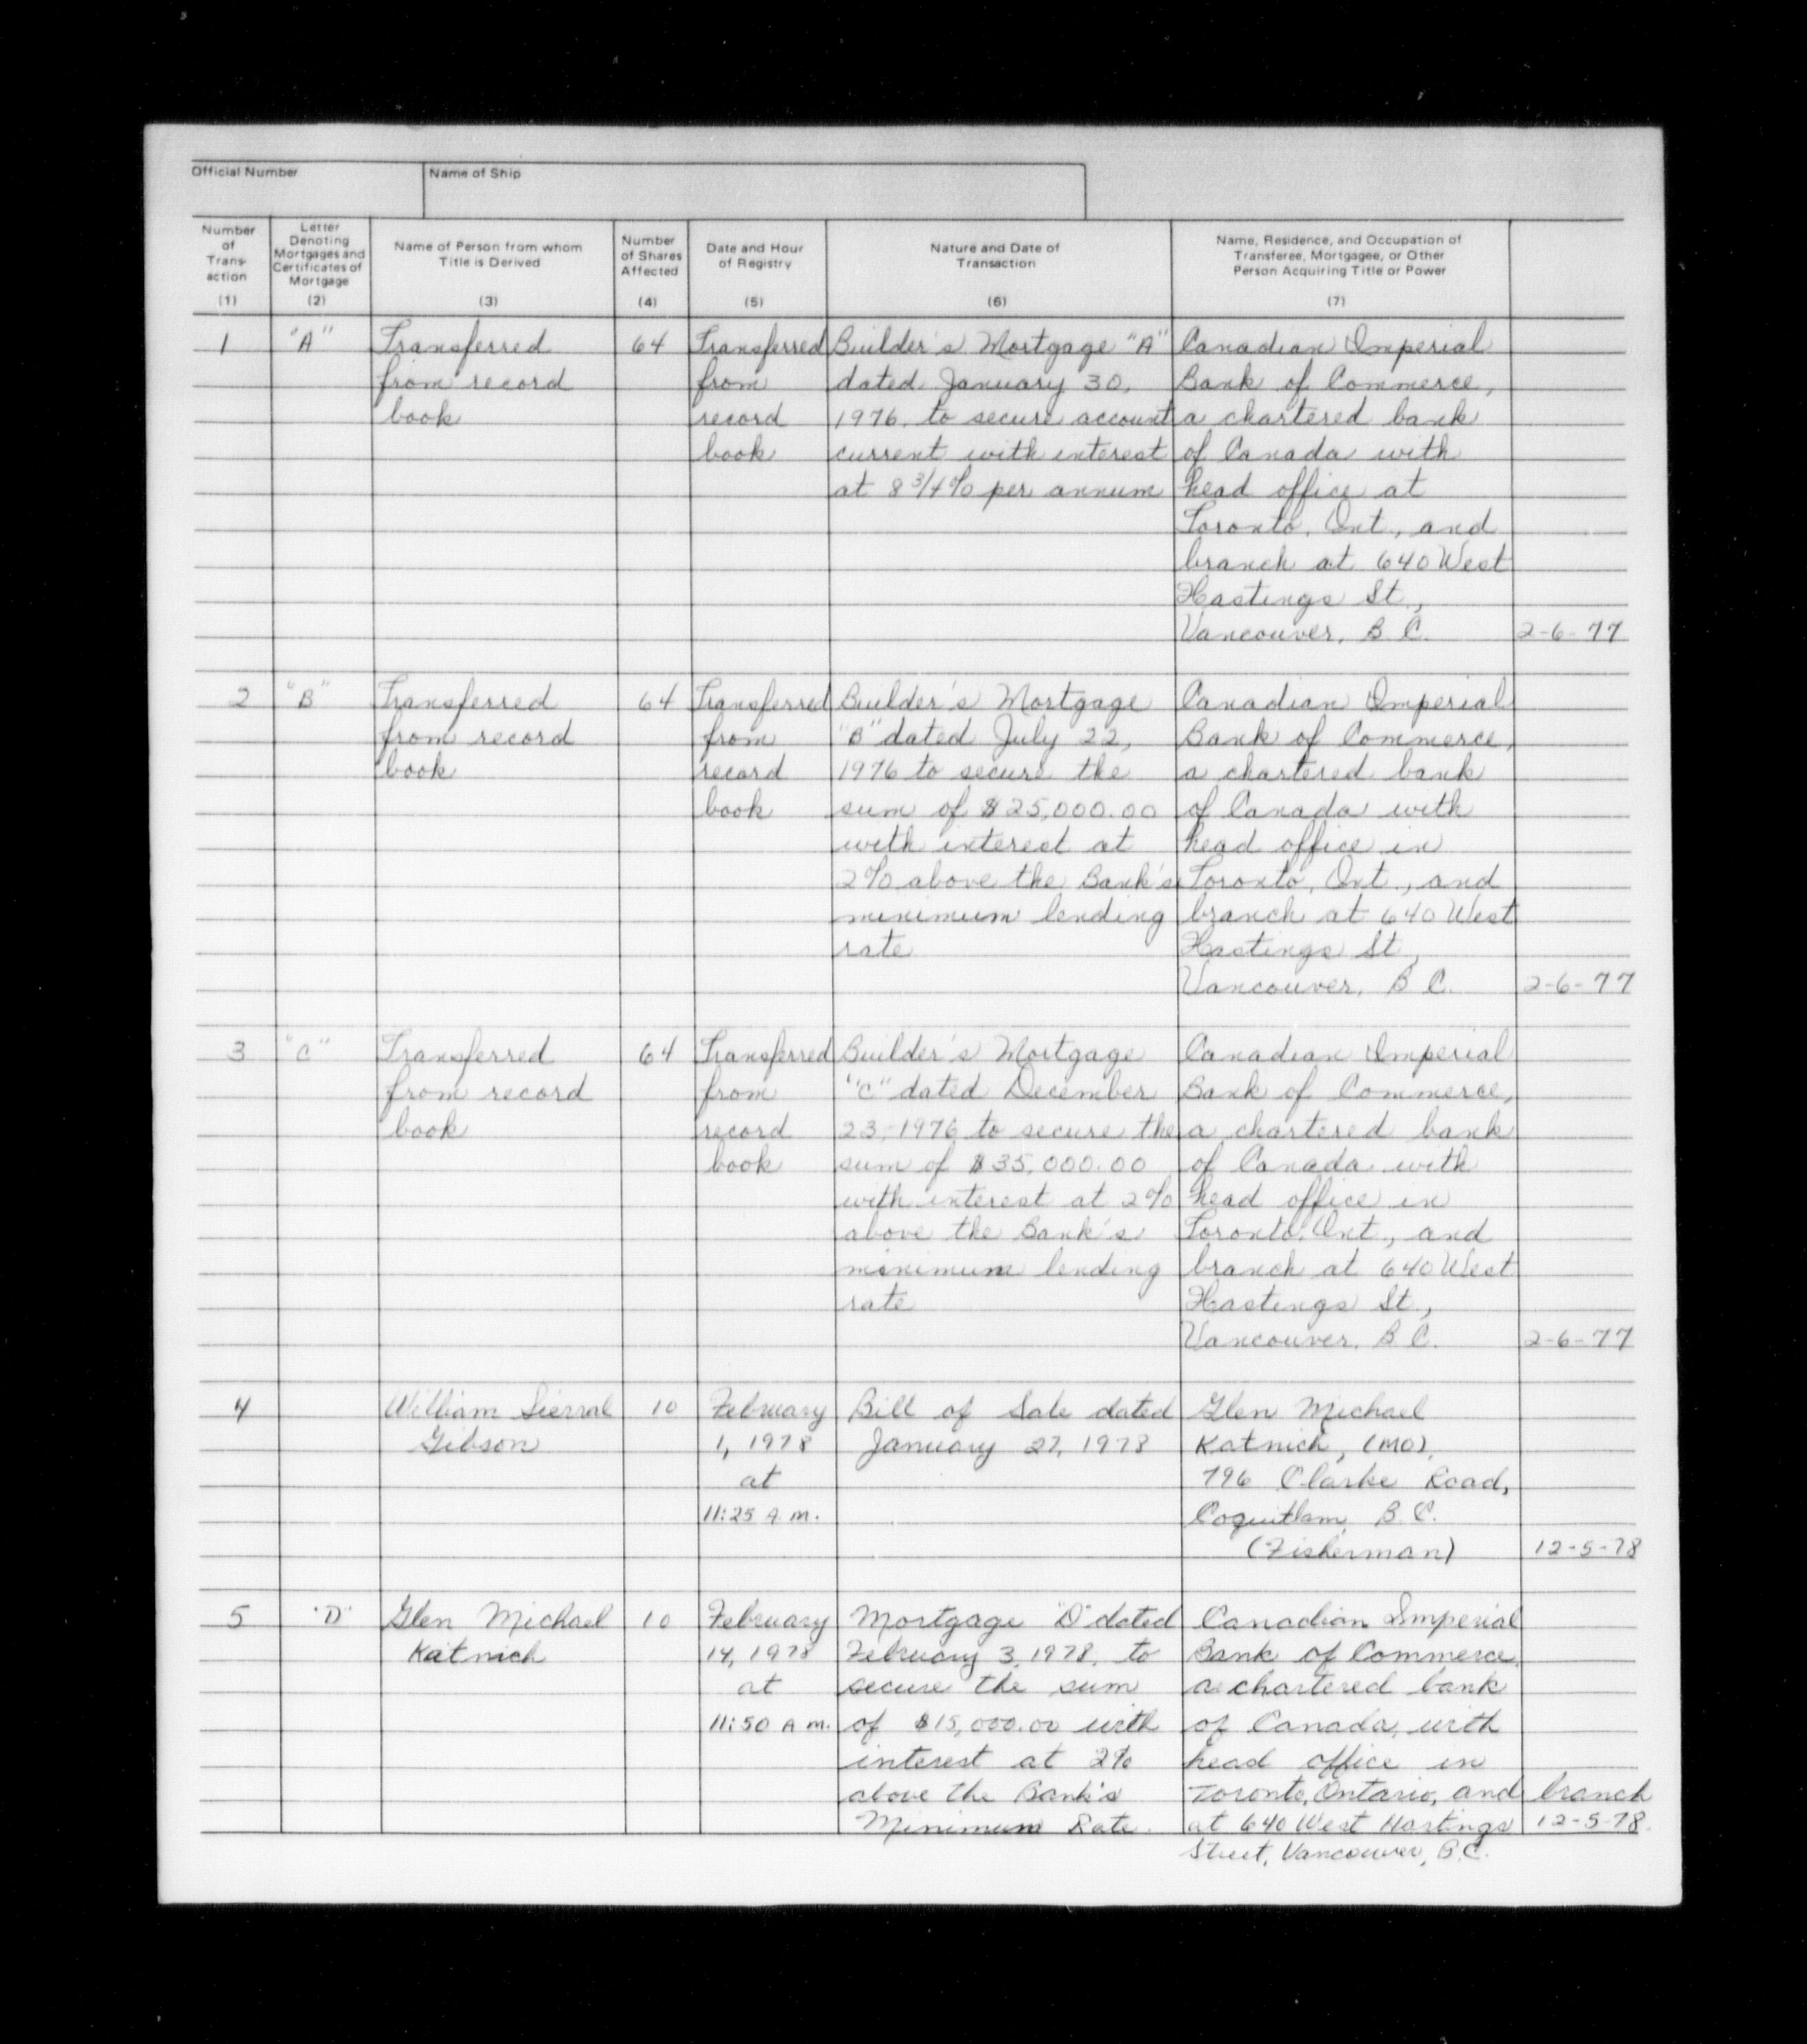 Official Number
Name of Ship
Number of Trans-action (1)
Letter Denoting Mortgages and Certificates of Mortgage (2)
Name of Person from whom Title is Derived (3)
Number of Shares Affected (4)
Date and Hour of Registry (5)
Nature and Date of Transaction (6)
Name, Residence, and Occupation of Transferee, Mortgagee, or Other Person Acquiring Title or Power (7)
1 "A" Transferred 64 Transferred Builder's Mortgage "A" Canadian Imperial
from record from dated January 30, Bank of Commerce,
book record 1976, to secure account a chartered bank
book current with interest of Canada with
at 8 3/4% per annum head office at
Toronto, Ont., and
branch at 640 West
Hastings St.,
Vancouver, B.C. 2-6-77
2 "B" Transferred 64 Transferred Builder's Mortgage Canadian Imperial
from record from "B" dated July 22, Bank of Commerce,
book record 1976 to secure the a chartered bank
book sum of $25,000.00 of Canada with
with interest at head office in
2% above the Bank's Toronto, Ont., and
minimum lending branch at 640 West
rate Hastings St.,
Vancouver, B.C. 2-6-77
3 "C" Transferred 64 Transferred Builder's Mortgage Canadian Imperial
from record from "C" dated December Bank of Commerce,
book record 23, 1976 to secure the a chartered bank
book sum of $35,000.00 of Canada with
with interest at 2% head office in
above the Bank's Toronto, Ont., and
minimum lending branch at 640 West
rate Hastings St.,
Vancouver, B.C. 2-6-77
4 William 10 February Bill of Sale dated Glen Michael
Gibson 1, 1978 January 27, 1978 Katnich, (MO),
at 796 Clarke Road,
11:25 A.M. Coquitlam, B.C.
(Fisherman) 12-5-78
5 "D" Glen Michael 10 February Mortgage "D" dated Canadian Imperial
Katnich 14, 1978 February 3, 1978, to Bank of Commerce,
at secure the sum a chartered bank
11:50 A.M. of $15,000.00 with of Canada, with
interest at 2% head office in
above the Bank's Toronto, Ontario, and branch
Minimum Rate. at 640 West Hastings 12-5-78.
Street, Vancouver, B.C.